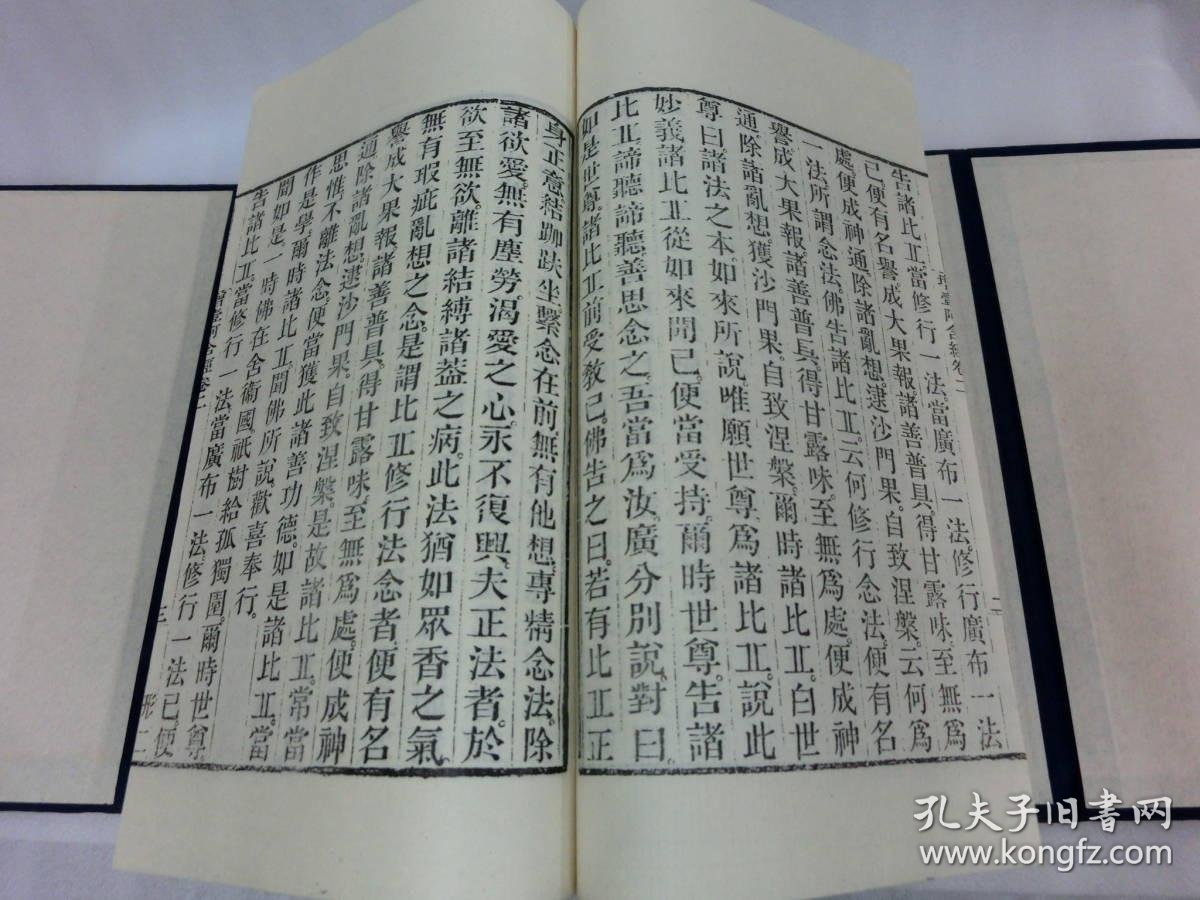 告諸比丘當修行一法當廣布一法修行廣布一法
已便有名譽成大果報諸善普具得甘露味至無爲
處便成神通除諸亂想逮沙門果自致涅槃云何爲
一法所謂念法佛告諸比丘云何修行念法便有名
譽成大果報諸善普具得甘露味至無爲處便成神
通除諸亂想獲沙門果自致涅槃爾時諸比丘白世
尊曰諸法之本如來所說唯願世尊爲諸比丘說此
妙義諸比丘從如來聞已便當受持爾時世尊告諸
比丘諦聽諦聽善思念之吾當爲汝廣分別說對曰
如是世尊諸比丘前受教已佛告之曰若有比丘正
身正意結跏趺坐繫念在前無有他想專精念法除
諸欲愛無有塵勞渴愛之心永不復興夫正法者於
欲至無欲離諸結縛諸蓋之病此法猶如眾香之氣
無有瑕疵亂想之念是謂比丘修行法念者便有名
譽成大果報諸善普具得甘露味至無爲處便成神
通除諸亂想逮沙門果自致涅槃是故諸比丘常當
思惟不離法念便當獲此諸善功德如是諸比丘當
作是學爾時諸比丘聞佛所說歡喜奉行
聞如是一時佛在舍衛國祇樹給孤獨園爾時世尊
告諸比丘當修行一法當廣布一法修行一法已便
增壹阿含經卷二
三
二
孔夫子旧书网
www.kongfz.com